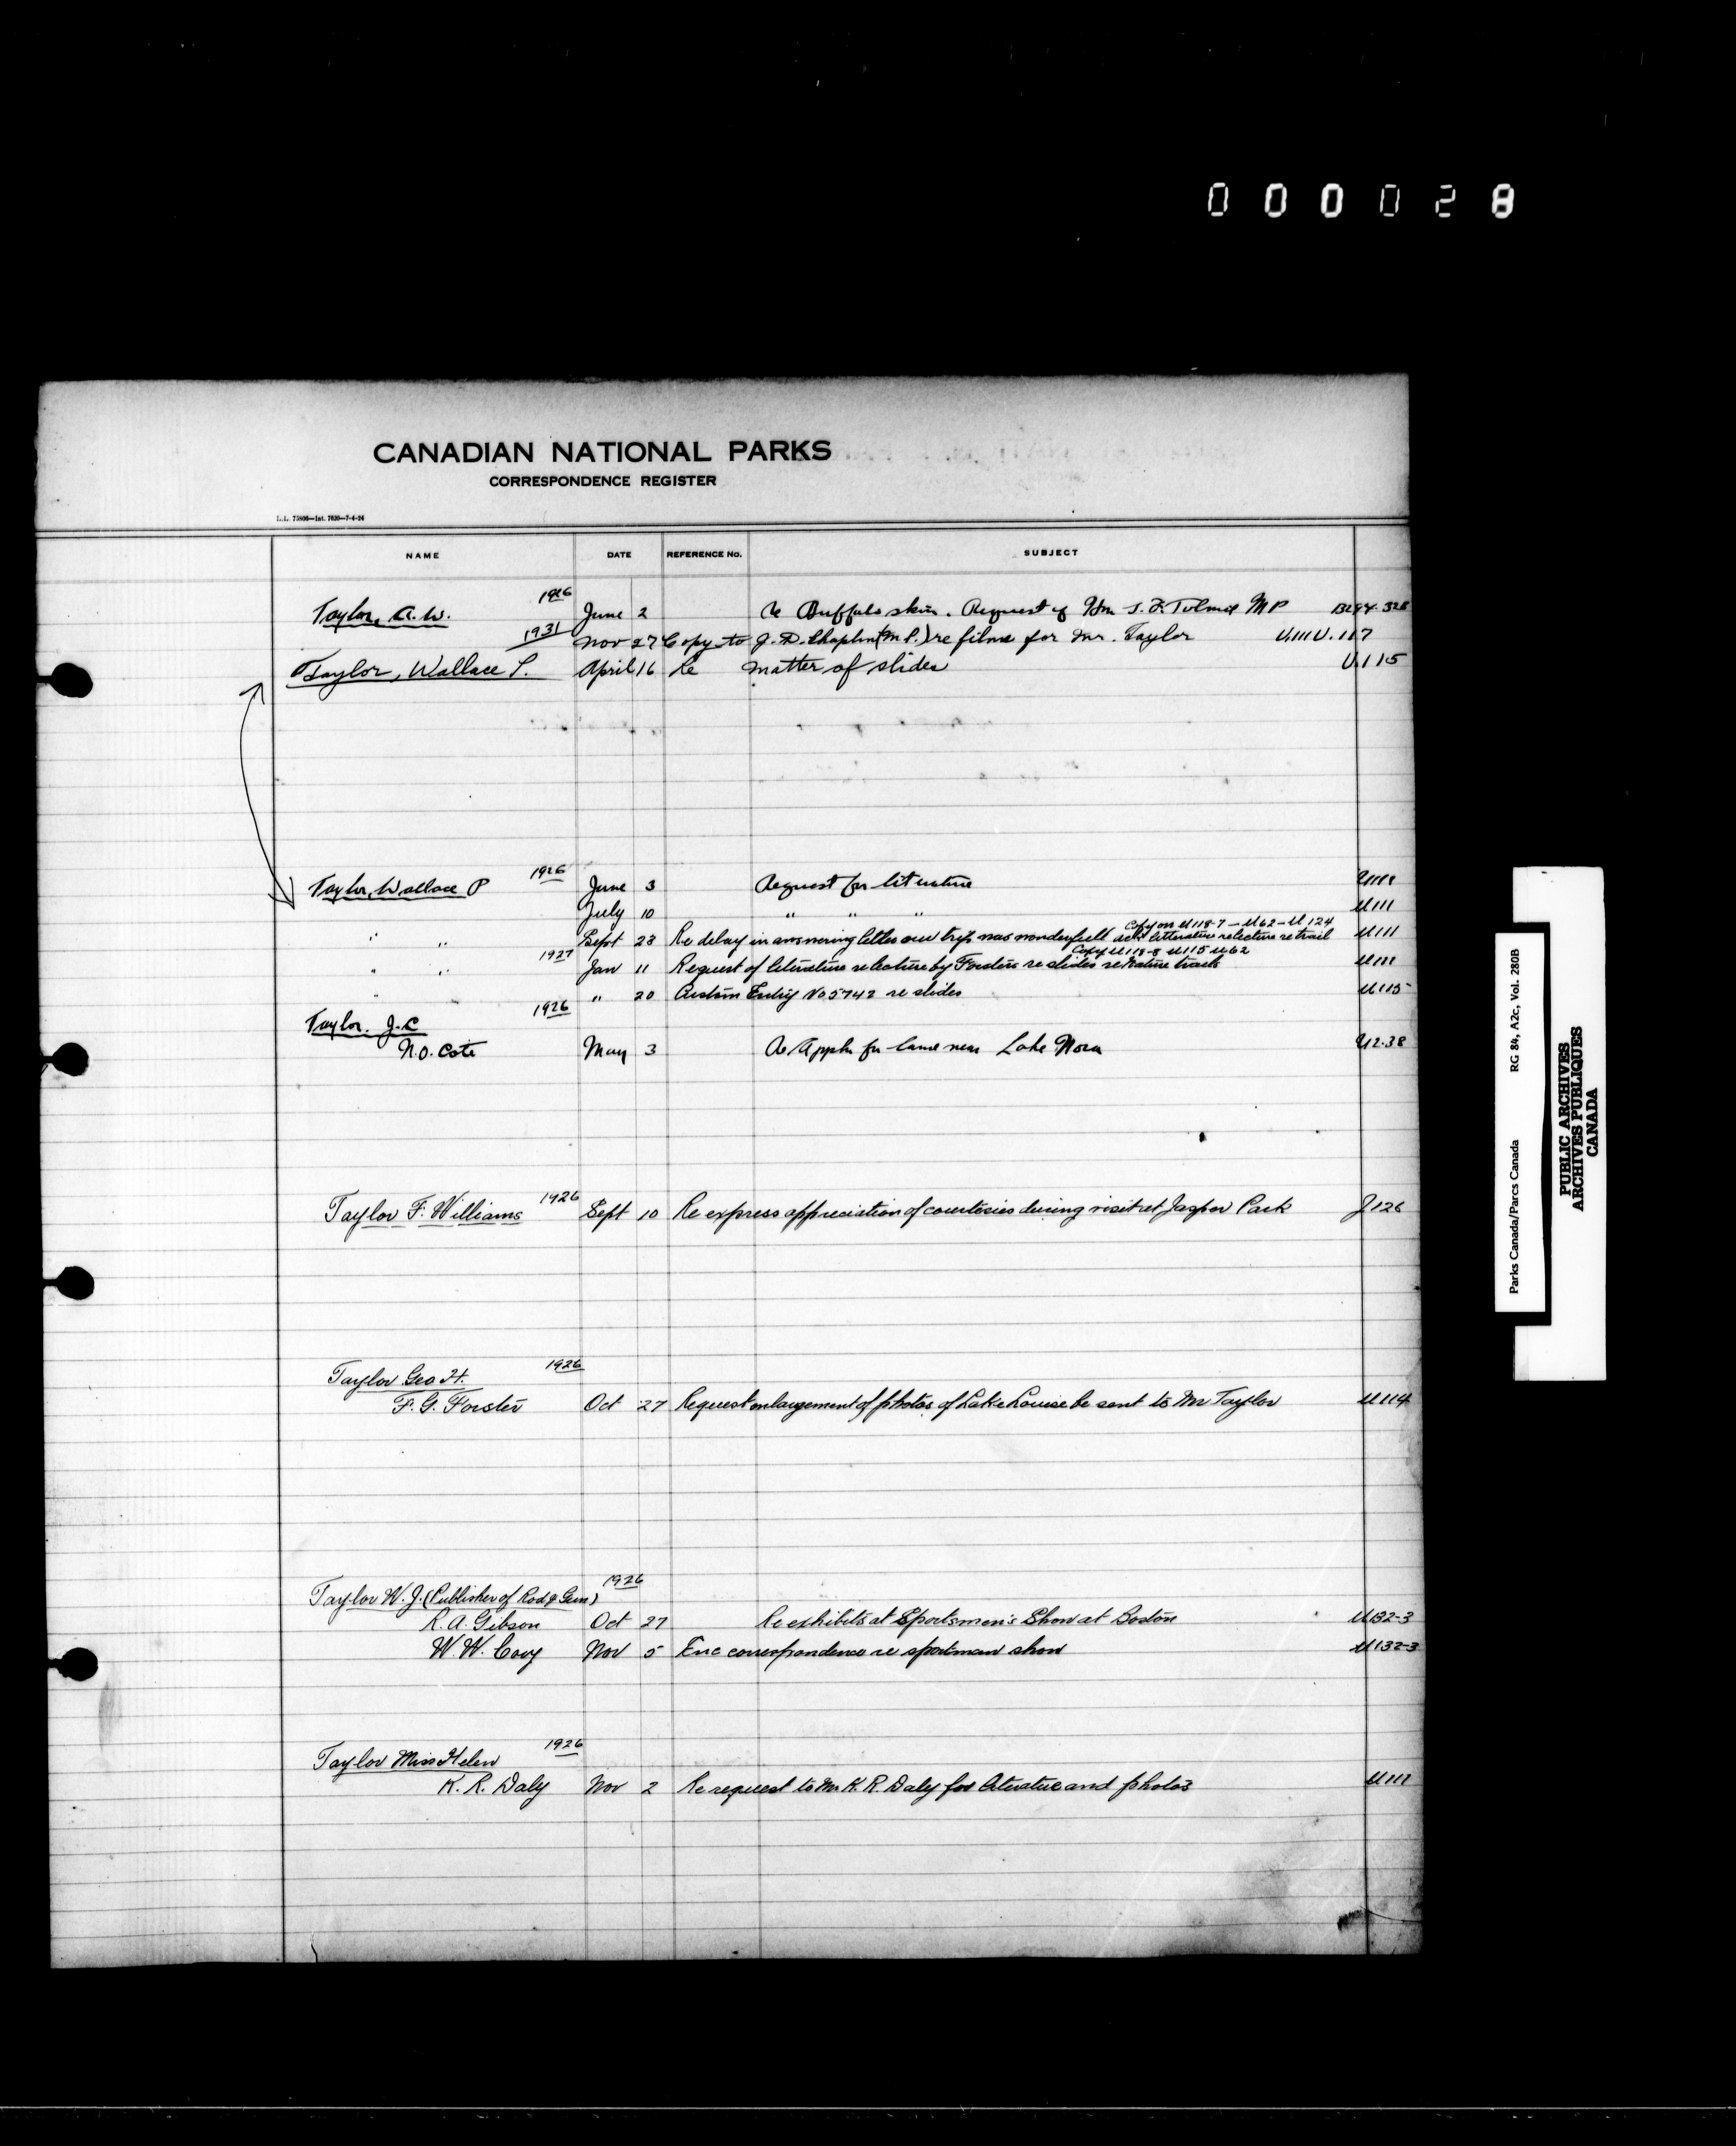 000028
CANADIAN NATIONAL PARKS
CORRESPONDENCE REGISTER
NAME DATE REFERENCE No. SUBJECT
Taylor, A.W. 1926 June 2 Re Buffalo skin. Request of Hon S. F. Tolmie MP B294-328
1931 Nov 27 Copy to J. D. Chaplin (M.P.) re films for Mr. Taylor U.111 U.117
Taylor, Wallace P. April 16 Re matter of slides U.115
Taylor, Wallace P 1926 June 3 Request for literature U111
July 10 " " " U111
copy on U118-7 - U62 - U124
" " Sept 28 Re delay in answering letter our trip was wonderfull literature re lecture re trail U111
Copy U118-8 U115 U62
" " 1927 Jan 11 Request of literature re lecture by Forsters re slides re Nature trails U111
" " 20 Custom Entry No 5742 re slides U115
Taylor. J. C 1926
N.O. Cote May 3 Re Appln for land near Lake Nora U2-38
Taylor F. Williams 1926 Sept 10 Re express appreciation of courtesies during visit at Jasper Park J126
Taylor Geo H. 1926
F. G. Forster Oct 27 Request enlargement of photos of Lake Louise be sent to Mr Taylor U114
Taylor W. J. (Publisher of Rod & Gun) 1926
R. A. Gibson Oct 27 Re exhibits at Sportsmen's Show at Boston U132-3
W. W. Cory Nov 5 Enc correspondence re sportman show U132-3
Taylor Miss Helen 1926
K. R. Daly Nov 2 Re request to Mr K. R. Daly for and photos U111
Parks Canada/Parcs Canada RG 84, A2c, Vol. 280B
PUBLIC ARCHIVES
ARCHIVES PUBLIQUES
CANADA